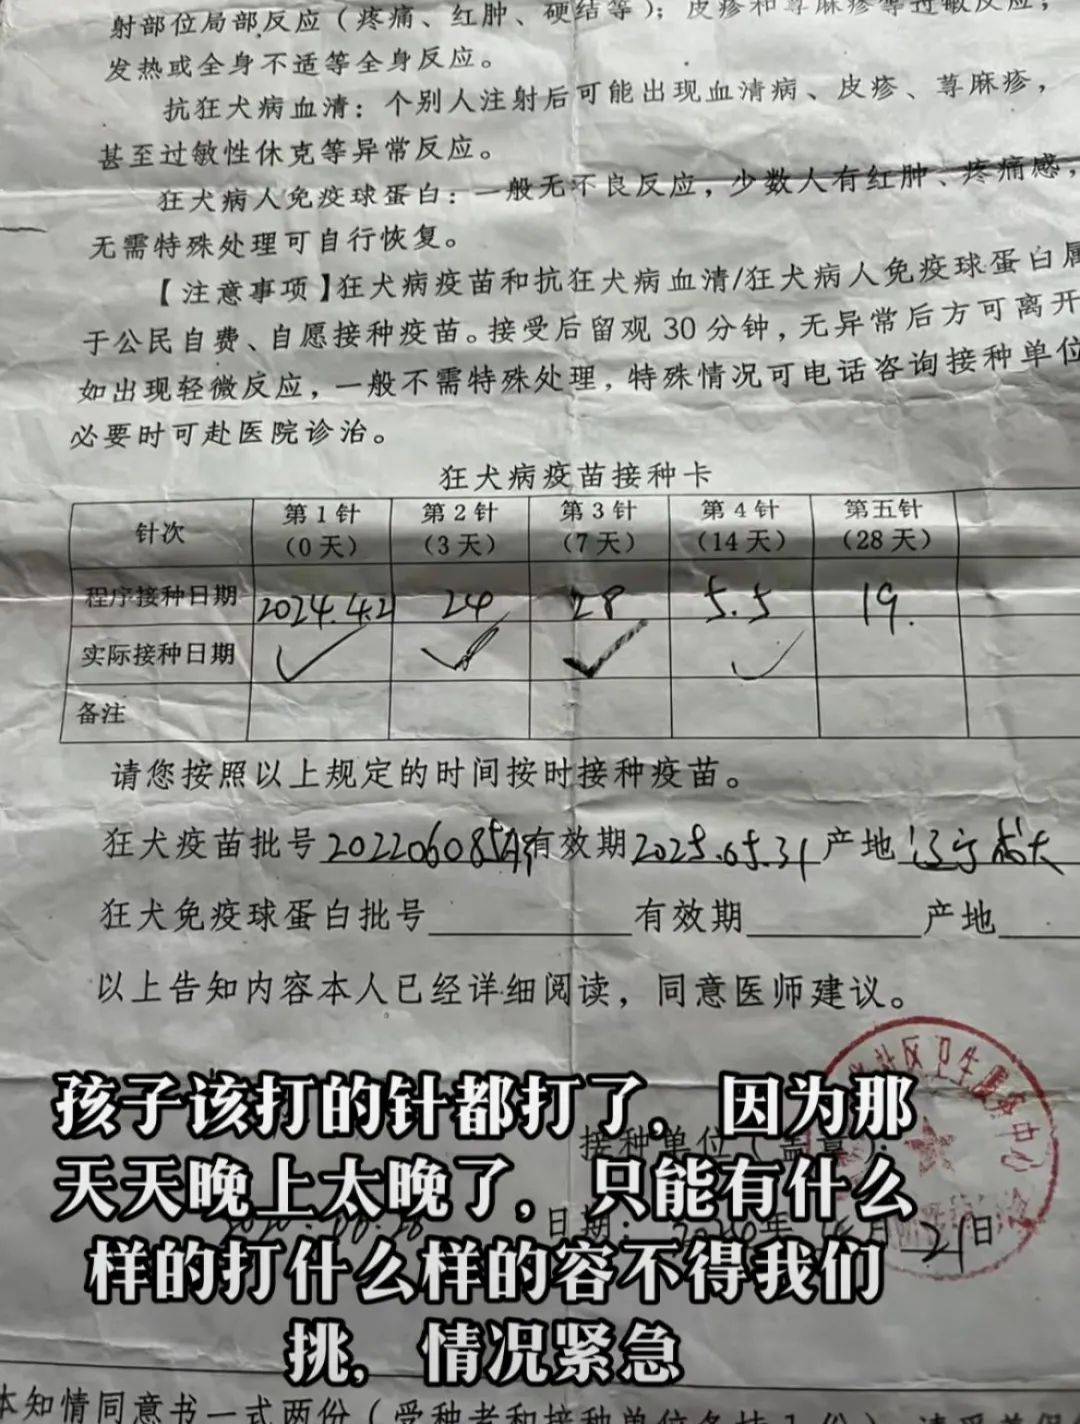 射部位局部反应（疼痛、红肿、硬结等）；皮疹和荨麻疹等过敏反应；
发热或全身不适等全身反应。
抗狂犬病血清：个别人注射后可能出现血清病、皮疹、荨麻疹，
甚至过敏性休克等异常反应。
狂犬病人免疫球蛋白：一般无不良反应，少数人有红肿、疼痛感，
无需特殊处理可自行恢复。
【注意事项】狂犬病疫苗和抗狂犬病血清/狂犬病人免疫球蛋白属
于公民自费、自愿接种疫苗。接受后留观30分钟，无异常后方可离开
如出现轻微反应，一般不需特殊处理，特殊情况可电话咨询接种单位
必要时可赴医院诊治。
狂犬病疫苗接种卡
针次 第1针（0天） 第2针（3天） 第3针（7天） 第4针（14天） 第五针（28天）
程序接种日期 2024.4.21 24 28 5.5 19.
实际接种日期 ✓ ✓ ✓ ✓
备注
请您按照以上规定的时间按时接种疫苗。
狂犬疫苗批号 202206085 有效期 2025.05.31 产地 辽宁成大
狂犬免疫球蛋白批号 有效期 产地
以上告知内容本人已经详细阅读，同意医师建议。
接种单位（盖章）：
社区卫生服务中心
日期： 年 月 21日
孩子该打的针都打了。因为那
天天晚上太晚了。只能有什么
样的打什么样的容不得我们
挑，情况紧急
本知情同意书一式两份（受种者和接种单位各持1份）